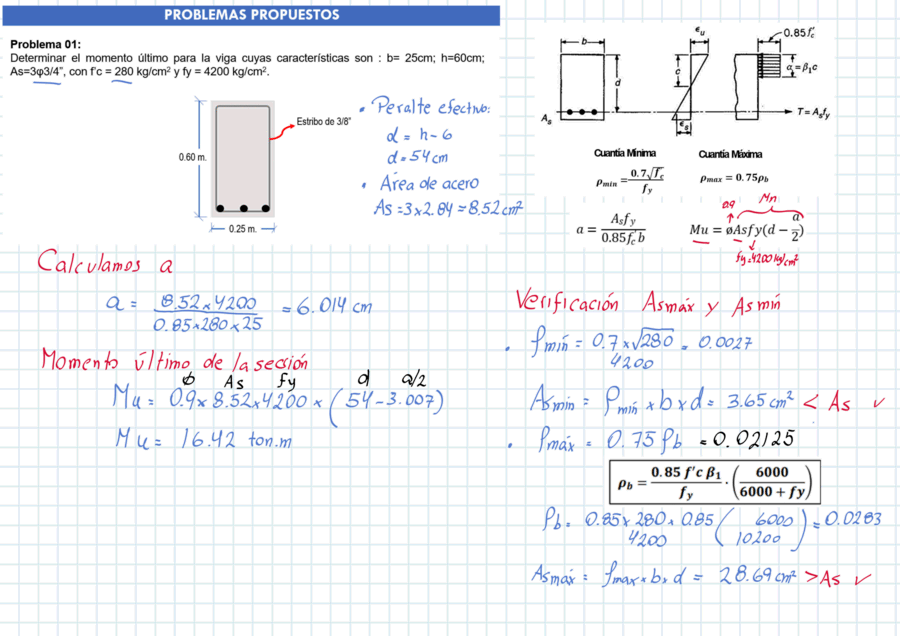 PROBLEMAS PROPUESTOS
Problema 01:
Determinar el momento último para la viga cuyas características son : b= 25cm; h=60cm;
As=3φ3/4", con f'c = 280 kg/cm² y fy = 4200 kg/cm².
0.60 m.
Estribo de 3/8"
0.25 m.
• Peralte efectivo:
d = h - 6
d = 54 cm
• Área de acero
As = 3 x 2.84 = 8.52 cm²
b
d
As
εu
c
εs
0.85f'c
a = β1c
T = Asfy
Cuantía Mínima
Cuantía Máxima
ρmin = 0.7√f'c / fy
ρmax = 0.75ρb
a = Asfy / 0.85f'c b
0.9
Mn
Mu = øAsfy(d − a/2)
fy=4200 kg/cm²
Calculamos a
a = 8.52 x 4200 / 0.85 x 280 x 25 = 6.014 cm
Momento último de la sección
ϕ As fy d a/2
Mu = 0.9 x 8.52 x 4200 x (54 - 3.007)
Mu = 16.42 ton.m
Verificación Asmáx y Asmín
• ρmín = 0.7 x √280 / 4200 = 0.0027
Asmin = ρmín x b x d = 3.65 cm² < As ✓
• ρmáx = 0.75 ρb = 0.02125
ρb = 0.85 f'c β1 / fy · (6000 / 6000 + fy)
ρb = 0.85 x 280 x 0.85 / 4200 (6000 / 10200) = 0.0283
Asmáx = ρmax x b x d = 28.69 cm² > As ✓